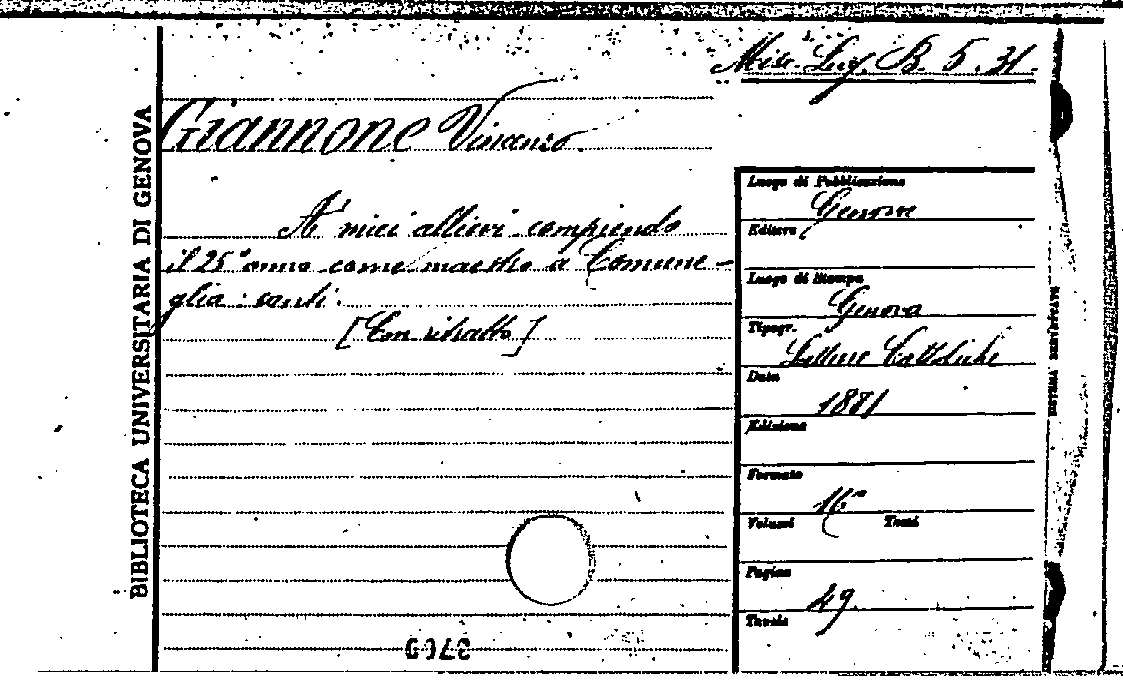 Misc. Lig. B. 5. 31.
BIBLIOTECA UNIVERSITARIA DI GENOVA
Giannone Vincenzo.
A' miei allievi compiendo
il 25° anno come maestro a Comune-
glia: canti.
[Con ritratto]
Luogo di Pubblicazione
Genova
Editore
Luogo di Stampa
Genova
Tipogr.
Letture Cattoliche
Data
1881
Edizione
Formato
16°
Volumi Tomi
Pagine
49.
Tavole
3700